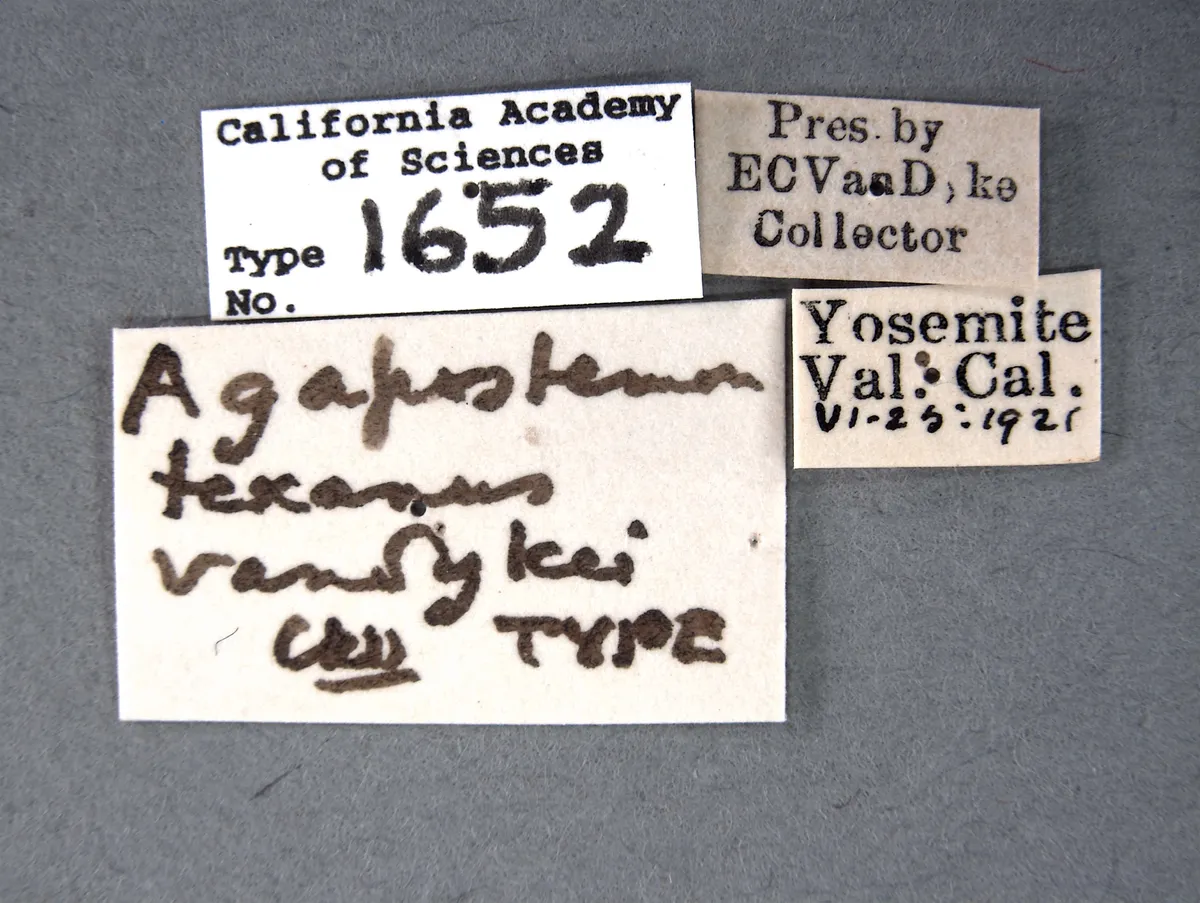 California Academy
of Sciences
Type 1652
No.
Pres. by
ECVanDyke
Collector
Yosemite
Val: Cal.
VI-25:1921
Agapostemon
texanus
vandykei
Ckll TYPE